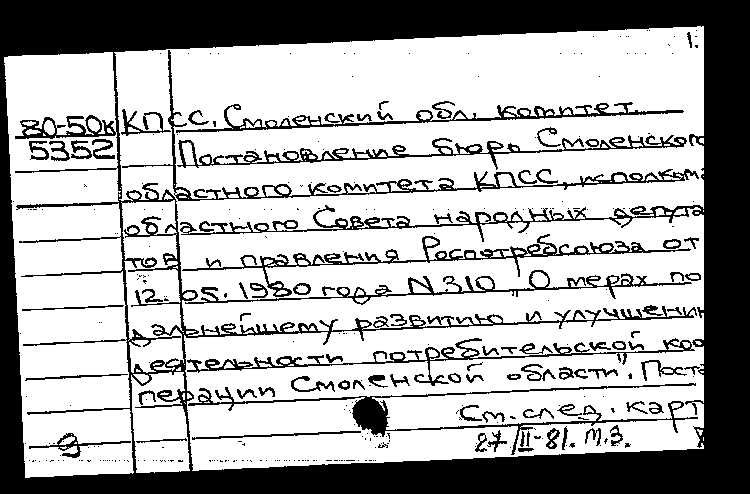 1.
80-50к КПСС. Смоленский обл. комитет.
5352 Постановление бюро Смоленского
областного комитета КПСС, исполкома
областного Совета народных депута
тов и правления Роспотребсоюза от
12.05.1980 года N 310 „О мерах по
дальнейшему развитию и улучшению
деятельности потребительской коо
перации Смоленской области". Поста
См. след. карт
27/II-81. М.З.